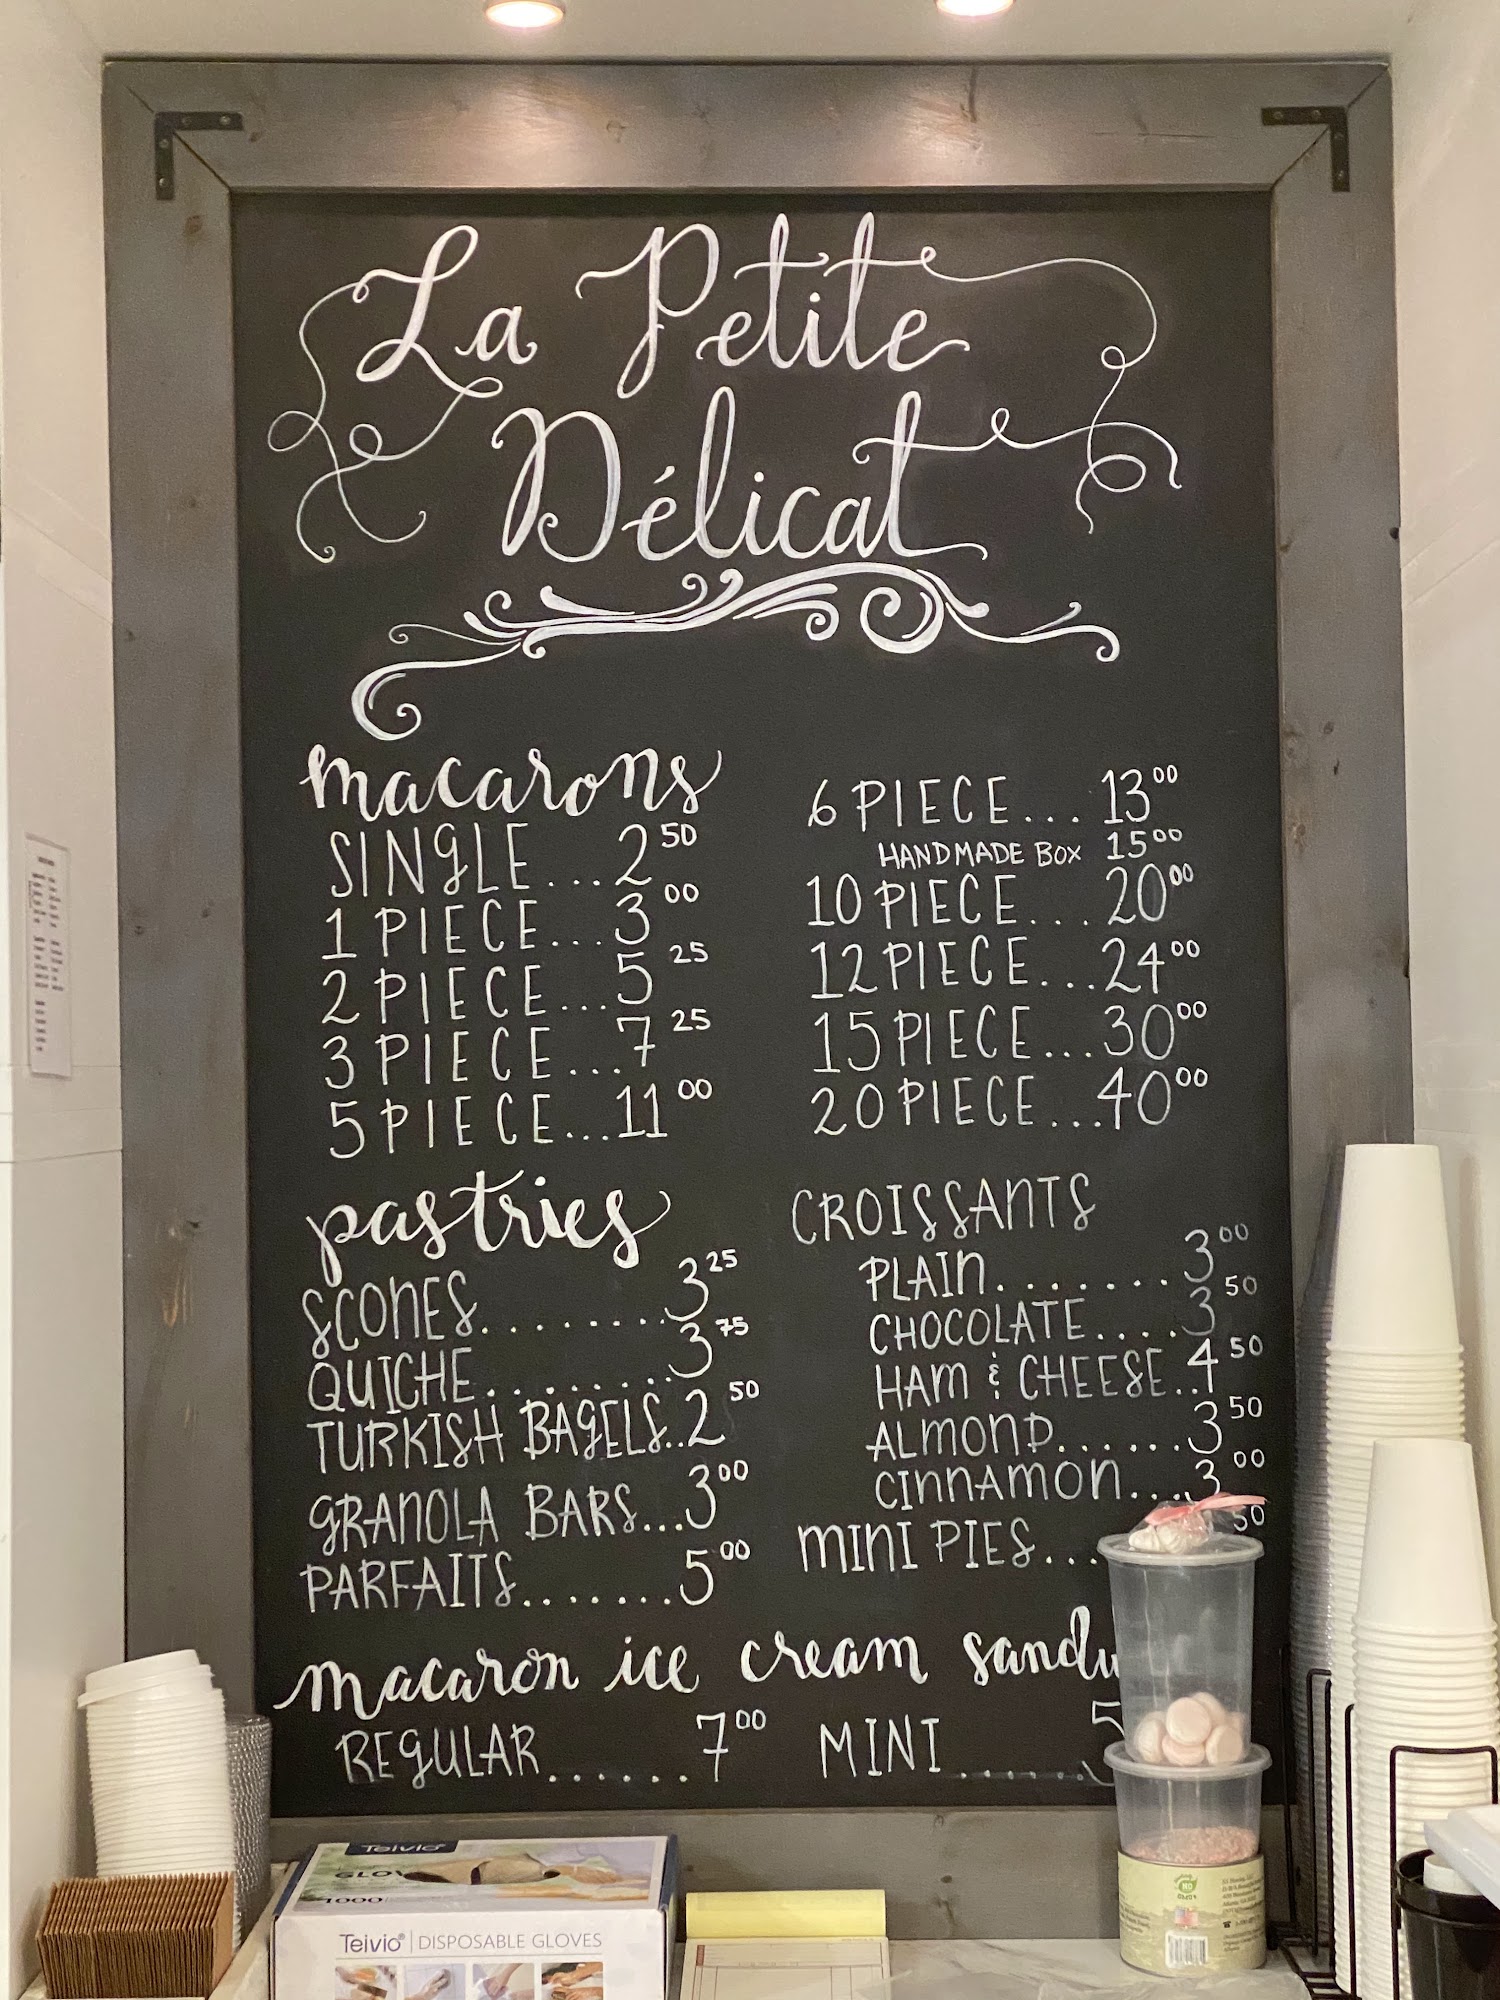 La Petite
Délicat
macarons
SINGLE...2 50
1 PIECE...3 00
2 PIECE...5 25
3 PIECE...7 25
5 PIECE...11 00
6 PIECE...13 00
HANDMADE BOX 15 00
10 PIECE...20 00
12 PIECE...24 00
15 PIECE...30 00
20 PIECE...40 00
pastries
SCONES........3 25
QUICHE........3 75
TURKISH BAGELS..2 50
GRANOLA BARS...3 00
PARFAITS.......5 00
CROISSANTS
PLAIN........3 00
CHOCOLATE....3 50
HAM & CHEESE..4 50
ALMOND......3 50
CINNAMON...3 00
MINI PIES... 50
macaron ice cream
REGULAR......7 00
MINI......5
Teivio
1000
Teivio® | DISPOSABLE GLOVES